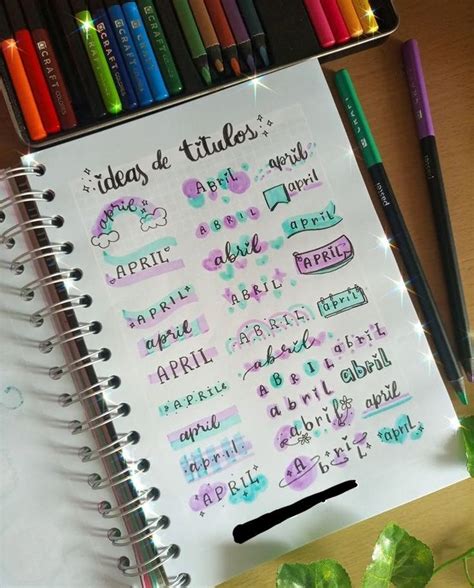 CRAFT
CRAFT
CRAFT
ideas de títulos
april
APRIL
APRIL
april
APRIL
APRIL
april
april.
APRIL
ABRIL
ABRIL
abril
ABRIL
ABRIL
abril
ABRIL
abril
abril
Abril
april
april
april
APRIL
april
abril
abril
april
april